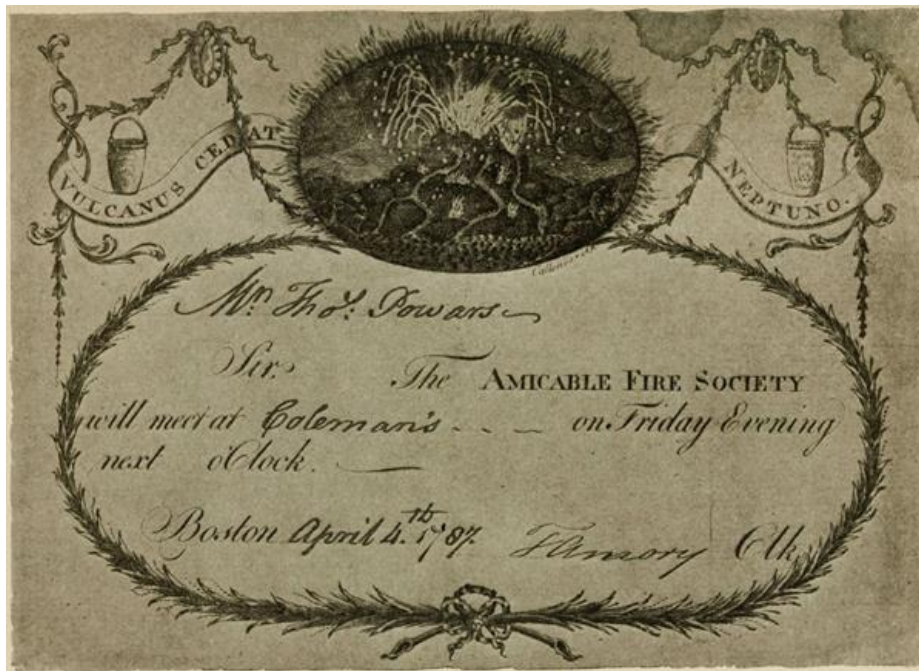 VULCANUS CEDAT NEPTUNO.
Mr. Thos. Powars
Sir. The AMICABLE FIRE SOCIETY
will meet at Coleman's on Friday Evening
next o'Clock.
Boston April 4.th 1787. Clk